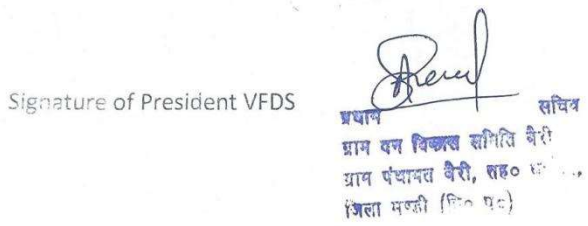 Signature of President VFDS
प्रधान सचिव
ग्राम वन विकास समिति बैरी
ग्राम पंचायत बैरी, तह०
जिला मण्डी (हि० प्र०)